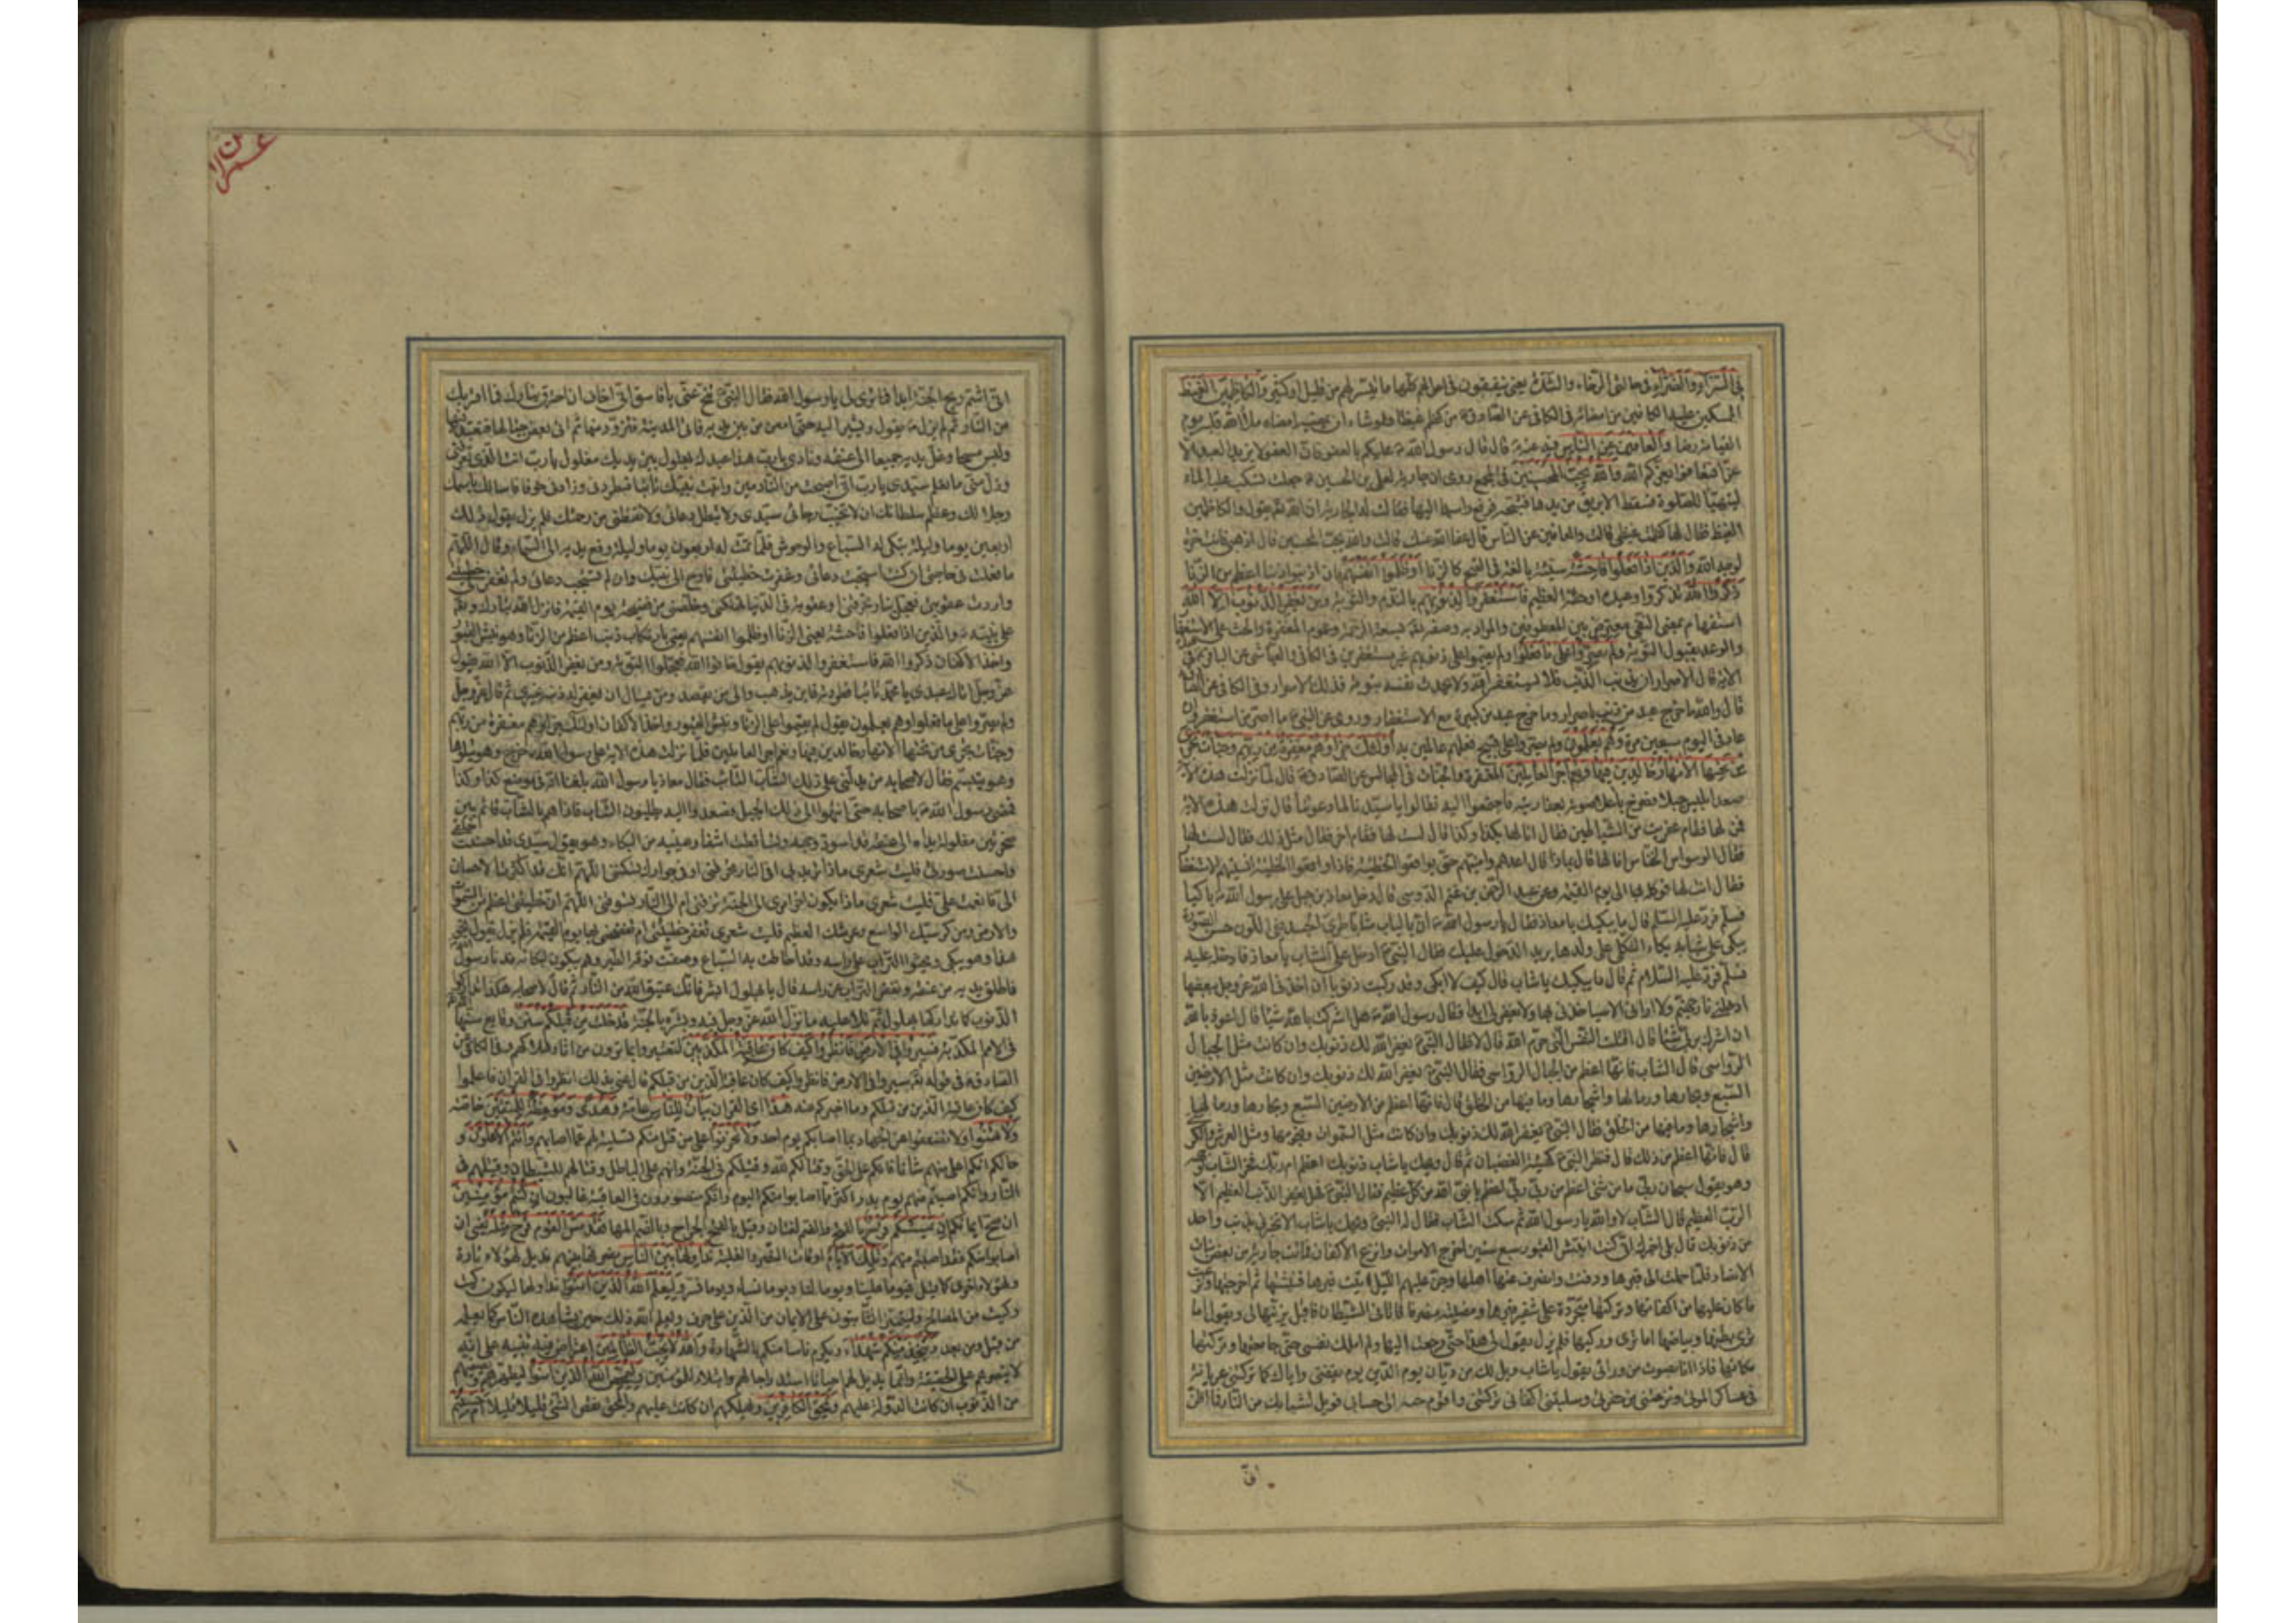 في السراء والضراء في حالتي الرخاء والشدة يعني ينفقون في احوالهم كلها ما تيسر لهم من قليل او كثير والكاظمين الغيظ
الممسكين عليه الكافين من امضائه في الكافي عن الصادق من كظم غيظا ولو شاء ان يمضيه امضاه ملأ الله قلبه يوم
القيامة رضا والعافين عن الناس فيه عنه قال قال رسول الله عليكم بالعفو فان العفو لا يزيد العبد الا
عزا فتعافوا يعزكم الله والله يحب المحسنين في المجمع روى ان جارية لعلي بن الحسين جعلت تسكب عليه الماء
ليتهيأ للصلوة فسقط الابريق من يدها فشجه فرفع راسه اليها فقالت له الجارية ان الله يقول والكاظمين
الغيظ فقال لها كظمت غيظي قالت والعافين عن الناس قال عفا الله عنك قالت والله يحب المحسنين قال اذهبي فانت حرة
لوجه الله والذين اذا فعلوا فاحشة سيئة بالغة في القبح كالزنا او ظلموا انفسهم بان اذنبوا ذنبا اعظم من الزنا
ذكروا الله تذكروا وعيده او حقه العظيم فاستغفروا لذنوبهم بالندم والتوبة ومن يغفر الذنوب الا الله
استفهام بمعنى النفي معترض بين المعطوفين والمراد به وصفه بسعة الرحمة وعموم المغفرة والحث على الاستغفار
والوعد بقبول التوبة ولم يصروا على ما فعلوا ولم يقيموا على ذنوبهم غير مستغفرين في الكافي والعياشي عن الباقر في
الاية قال الاصرار ان يذنب الذنب فلا يستغفر الله ولا يحدث نفسه بتوبة فذلك الاصرار وفي الكافي عن
قال والله ما خرج عبد من ذنب باصرار وما خرج عبد من كبيرة مع الاستغفار وروي عن النبي ما اصر من استغفر وان
عاد في اليوم سبعين مرة وهم يعلمون ولم يصروا على قبيح فعلهم عالمين به اولئك جزاؤهم مغفرة من ربهم وجنات تجري
من تحتها الانهار خالدين فيها ونعم اجر العاملين المغفرة والجنات في المجالس عن الصادق قال لما نزلت هذه الاية
صعد ابليس جبلا فصرخ باعلى صوته بعفاريته فاجتمعوا اليه فقالوا يا سيدنا لما دعوتنا قال نزلت هذه الاية
فمن لها فقام عفريت من الشياطين فقال انا لها بكذا وكذا قال لست لها فقام اخر فقال مثل ذلك فقال لست لها
فقال الوسواس الخناس انا لها قال بماذا قال اعدهم وامنيهم حتى يواقعوا الخطيئة فاذا واقعوا الخطيئة انسيتهم الاستغفار
فقال انت لها فوكله بها الى يوم القيمة وعن عبد الرحمن بن غنم الدوسي قال دخل معاذ بن جبل على رسول الله باكيا
فسلم فرد عليه السلم قال ما يبكيك يا معاذ فقال يا رسول الله ان بالباب شابا طري الجسد نقي اللون حسن الصورة
يبكي على شبابه بكاء الثكلى على ولدها يريد الدخول عليك فقال النبي ادخل علي الشاب يا معاذ فادخله عليه
فسلم فرد عليه السلام ثم قال ما يبكيك يا شاب قال كيف لا ابكي وقد ركبت ذنوبا ان اخذني الله عز وجل ببعضها
ادخلني نار جهنم ولا اراني الا سياخذني بها ولا يغفر لي ابدا فقال رسول الله هل اشركت بالله شيئا قال اعوذ بالله
ان اشرك بربي شيئا قال اقتلت النفس التي حرم الله قال لا فقال النبي يغفر الله لك ذنوبك وان كانت مثل الجبال
الرواسي قال الشاب فانها اعظم من الجبال الرواسي فقال النبي يغفر الله لك ذنوبك وان كانت مثل الارضين
السبع وبحارها ورمالها واشجارها وما فيها من الخلق قال فانها اعظم من الارضين السبع وبحارها ورمالها
واشجارها وما فيها من الخلق فقال النبي يغفر الله لك ذنوبك وان كانت مثل السموات ونجومها ومثل العرش والكرسي
قال فانها اعظم من ذلك قال فنظر النبي كهيئة الغضبان ثم قال ويحك يا شاب ذنوبك اعظم ام ربك فخر الشاب لوجهه
وهو يقول سبحان ربي ما من شئ اعظم من ربي ربي اعظم يا نبي الله من كل عظيم فقال النبي فهل يغفر الذنب العظيم الا
الرب العظيم قال الشاب لا والله يا رسول الله ثم سكت الشاب فقال له النبي ويحك يا شاب الا تخبرني بذنب واحد
من ذنوبك قال بلى اخبرك اني كنت انبش القبور سبع سنين اخرج الاموات وانزع الاكفان فماتت جارية من بعض بنات
الانصار فلما حملت الى قبرها ودفنت وانصرف عنها اهلها وجن عليهم الليل اتيت قبرها فنبشتها ثم اخرجتها ونزعت
ما كان عليها من اكفانها وتركتها متجردة على شفير قبرها ومضيت منصرفا فاتاني الشيطان فاقبل يزينها لي ويقول اما
ترى بطنها وبياضها اما ترى وركيها فلم يزل يقول لي هذا حتى رجعت اليها ولم املك نفسي حتى جامعتها وتركتها
مكانها فاذا انا بصوت من ورائي يقول يا شاب ويل لك من ديان يوم الدين يوم يقفني واياك كما تركتني عريانة
في عساكر الموتى ونزعتني من حفرتي وسلبتني اكفاني وتركتني واقوم جنبة الى حسابي فويل لشبابك من النار فما اظن
اني
عمران
اني اشم ريح الجنة ابدا فما ترى لي يا رسول الله فقال النبي تنح عني يا فاسق اني اخاف ان احترق بنارك فما اقربك
من النار ثم لم يزل يقول ويشير اليه حتى امعن من بين يديه فاتى المدينة فتزود منها ثم اتى بعض جبالها فتعبد فيها
ولبس مسحا وغل يديه جميعا الى عنقه ونادى يا رب هذا عبدك بهلول بين يديك مغلول يا رب انت الذي تعرفني
وزل مني ما تعلم سيدي يا رب اني اصبحت من النادمين واتيت نبيك تائبا فطردني وزادني خوفا فاسالك باسمك
وجلالك وعظم سلطانك ان لا تخيب رجائي سيدي ولا تبطل دعائي ولا تقنطني من رحمتك فلم يزل يقول ذلك
اربعين يوما وليلة تبكي له السباع والوحوش فلما تمت له اربعون يوما وليلة رفع يديه الى السماء وقال اللهم
ما فعلت في حاجتي ان كنت استجبت دعائي وغفرت خطيئتي فاوح الى نبيك وان لم تستجب دعائي ولم تغفر لي خطيئتي
واردت عقوبتي فعجل بنار تحرقني او عقوبة في الدنيا تهلكني وخلصني من فضيحة يوم القيمة فانزل الله تبارك وتعالى
على نبيه والذين اذا فعلوا فاحشة يعني الزنا او ظلموا انفسهم يعني بارتكاب ذنب اعظم من الزنا وهو نبش القبور
واخذ الاكفان ذكروا الله فاستغفروا لذنوبهم يقول خافوا الله فعجلوا التوبة ومن يغفر الذنوب الا الله يقول
عز وجل اتاك عبدي يا محمد تائبا فطردته فاين يذهب والى من يقصد ومن يسال ان يغفر له ذنبه غيري ثم قال عز وجل
ولم يصروا على ما فعلوا وهم يعلمون يقول لم يقيموا على الزنا ونبش القبور واخذ الاكفان اولئك جزاؤهم مغفرة من ربهم
وجنات تجري من تحتها الانهار خالدين فيها ونعم اجر العاملين فلما نزلت هذه الاية على رسول الله خرج وهو يتلوها
وهو يتبسم فقال لاصحابه من يدلني على ذلك الشاب التائب فقال معاذ يا رسول الله بلغنا انه في موضع كذا وكذا
فمضى رسول الله باصحابه حتى انتهوا الى ذلك الجبل وصعدوا اليه يطلبون الشاب فاذا هم بالشاب قائم بين
صخرتين مغلولة يداه الى عنقه قد اسود وجهه وتساقطت اشفار عينيه من البكاء وهو يقول سيدي قد احسنت خلقي
واحسنت صورتي فليت شعري ماذا تريد بي افي النار تحرقني او في جوارك تسكنني اللهم انك قد اكثرت الاحسان
الي فانعمت علي فليت شعري ماذا يكون اخر امري الى الجنة تزفني ام الى النار تسوقني اللهم ان خطيئتي اعظم من السموات
والارض ومن كرسيك الواسع وعرشك العظيم فليت شعري تغفر خطيئتي ام تفضحني بها يوم القيمة فلم يزل يقول نحو
هذا وهو يبكي ويحثوا التراب على راسه وقد احاطت به السباع وصفت فوقه الطير وهم يبكون لبكائه فدنا رسول الله
فاطلق يديه من عنقه ونفض التراب عن راسه قال يا بهلول ابشر فانك عتيق الله من النار ثم قال لاصحابه هكذا تداركوا
الذنوب كما تداركها بهلول ثم تلا عليه ما نزل الله عز وجل فيه وبشره بالجنة قد خلت من قبلكم سنن وقايع سنها الله
في الامم المكذبة فسيروا في الارض فانظروا كيف كان عاقبة المكذبين لتعتبروا بما ترون من اثار هلاكهم وفي الكافي عن
الصادق في قوله قل سيروا في الارض فانظروا كيف كان عاقبة الذين من قبلكم قال عنى بذلك انظروا في القران فاعلموا
كيف كان عاقبة الذين من قبلكم وما اخبركم عنه هذا اي القران بيان للناس عامة وهدى وموعظة للمتقين خاصة
ولا تهنوا ولا تضعفوا عن الجهاد بما اصابكم يوم احد ولا تحزنوا على من قتل منكم تسلية لهم عما اصابهم وانتم الاعلون و
حالكم انكم اعلى منهم شانا فانكم على الحق وقتالكم لله وقتلاكم في الجنة وانهم على الباطل وقتالهم للشيطان وقتلاهم في
النار وانكم اصبتم منهم يوم بدر اكثر مما اصابوا منكم اليوم وانكم منصورون في العاقبة غالبون ان كنتم مؤمنين
ان صح ايمانكم ان يمسسكم قرح بالفتح والضم لغتان وقيل بالفتح الجراح وبالضم المها فقد مس القوم قرح مثله يعني ان
اصابوا منكم فقد اصبتم منهم وتلك الايام اوقات النصر والغلبة نداولها بين الناس نصرفها بينهم نديل لهؤلاء تارة
ولهؤلاء اخرى كما قيل فيوما علينا ويوما لنا ويوما نساء ويوما نسر وليعلم الله الذين امنوا نداولها ليكون كيت
وكيت من المصالح وليتميز الثابتون على الايمان من الذين على حرف وليعلم الله ذلك حين يشاهده الناس كما يعلمه
من قبل ومن بعد ويتخذ منكم شهداء ويكرم ناسا منكم بالشهادة والله لا يحب الظالمين اعتراض فيه تنبيه على انه
لا ينصرهم على الحقيقة وانما يديل لهم احيانا استدراجا لهم وابتلاء للمؤمنين وليمحص الله الذين امنوا ليطهرهم ويصفيهم
من الذنوب ان كانت الدولة عليهم ويمحق الكافرين ويهلكهم ان كانت عليهم والمحق نقص الشئ قليلا قليلا ام حسبتم